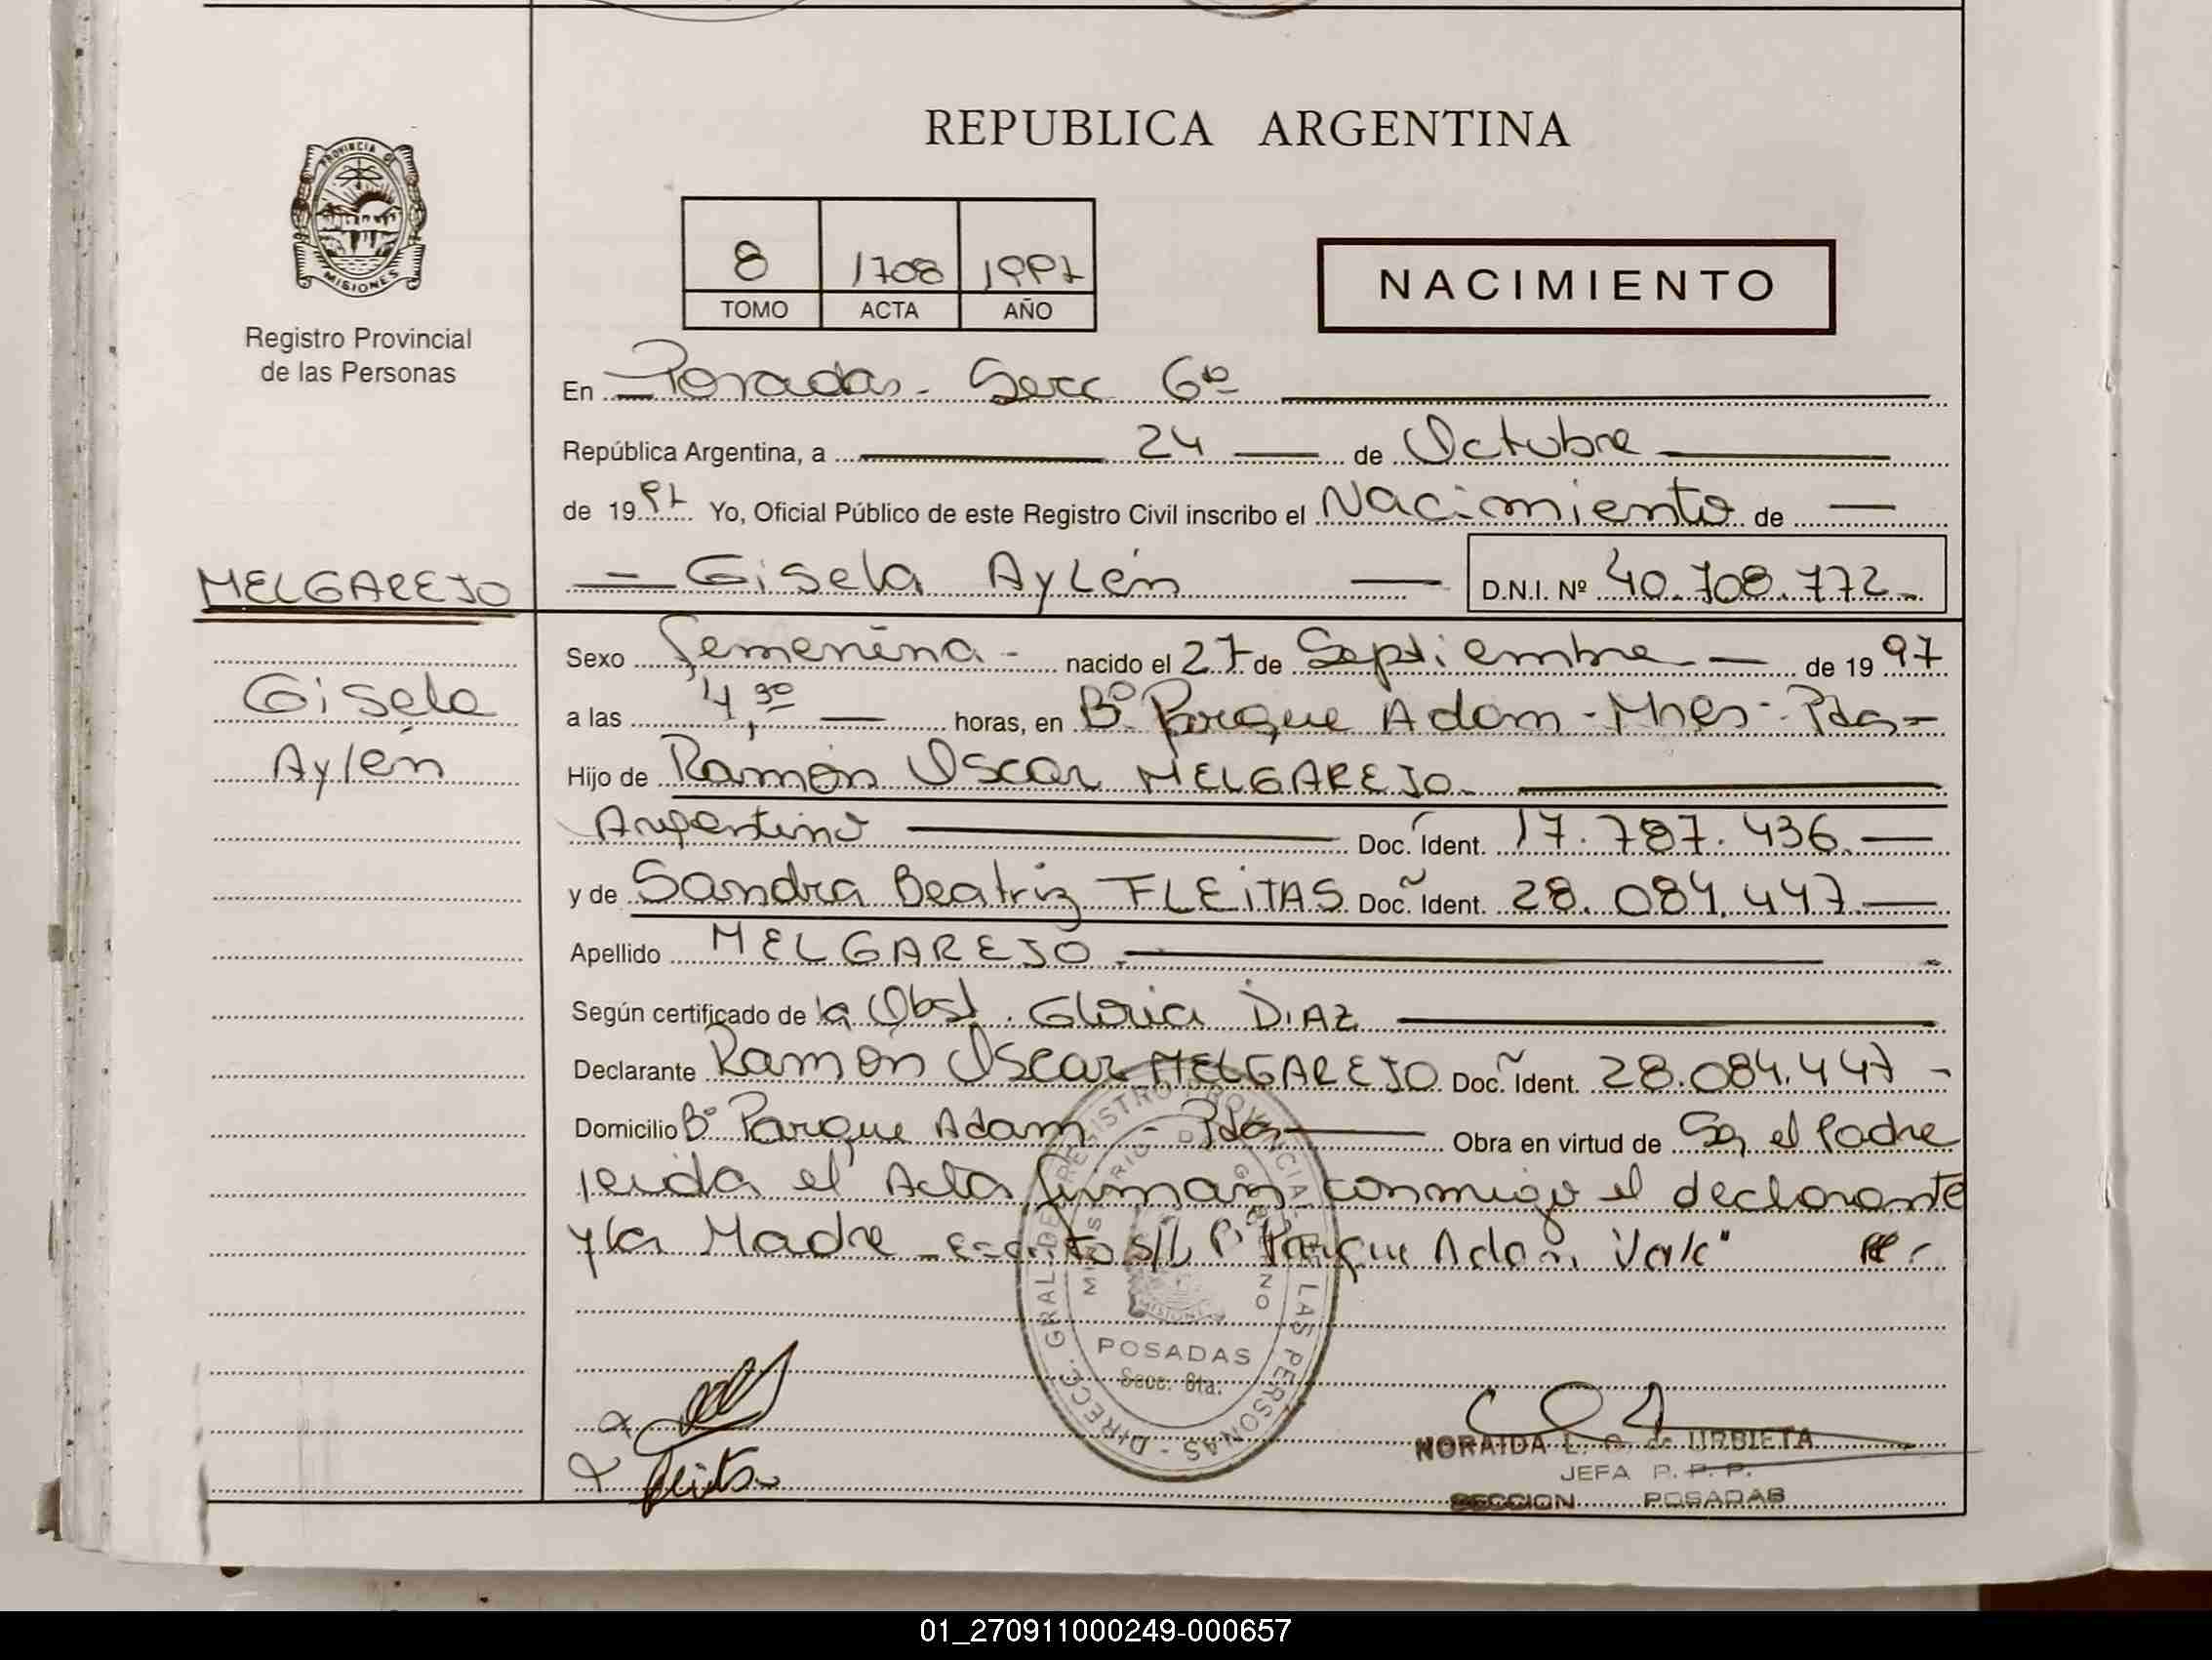 REPUBLICA ARGENTINA
PROVINCIA DE
MISIONES
Registro Provincial
de las Personas
8 1708 1997
TOMO ACTA AÑO
NACIMIENTO
En Posadas - Secc 6ta
República Argentina, a 24 de Octubre
de 1997 Yo, Oficial Público de este Registro Civil inscribo el Nacimiento de
MELGAREJO
Gisela
Aylén
Gisela Aylén D.N.I. Nº 40.708.772.-
Sexo femenina - nacido el 27 de Septiembre de 1997
a las 4,30 horas, en Bº Parque Adam - Mnes - Pdas -
Hijo de Ramón Oscar MELGAREJO.
Argentino Doc. Ident. 17.787.436.
y de Sandra Beatriz FLEITAS Doc. Ident. 28.084.447
Apellido MELGAREJO.
Según certificado de la Obst. Gloria DIAZ
Declarante Ramón Oscar MELGAREJO Doc. Ident. 28.084.447 -
Domicilio Bº Parque Adam - Pdas Obra en virtud de Ser el Padre
leida el Acta firman conmigo el declarante
y la Madre - escrito S/L Bº Parque Adam Vale"
DIRECC. GRAL. DE REGISTRO PROVINCIAL DE LAS PERSONAS
MINISTERIO DE GOBIERNO
MISIONES
POSADAS
Secc. 6ta.
NORAIDA L. de URBIETA
JEFA P. P. P.
SECCION POSADAS
01_270911000249-000657